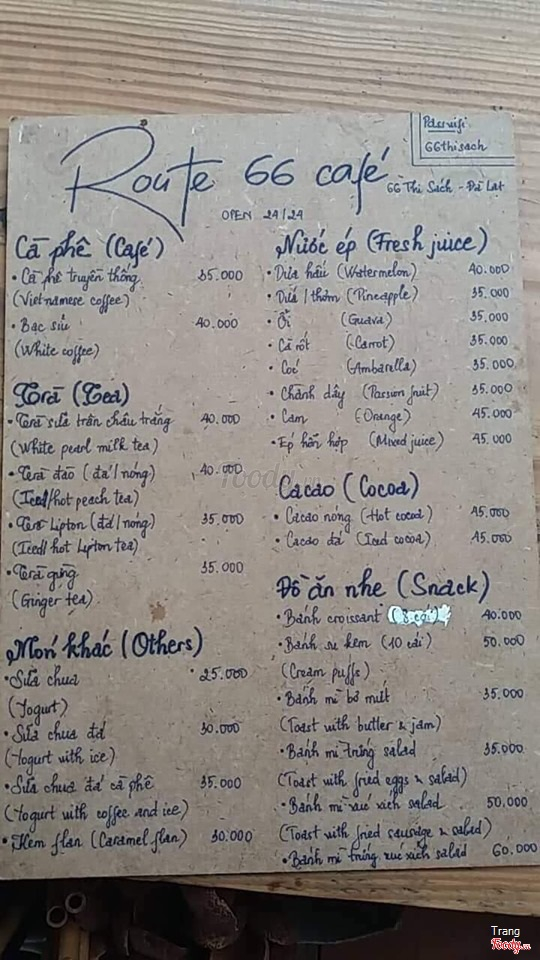 Pass wifi
66thisach
Route 66 café
66 Thi Sách - Đà Lạt
OPEN 24/24
Cà phê (Café)
• Cà phê truyền thống 35.000
(Vietnamese coffee)
• Bạc sỉu 40.000
(White coffee)
Trà (Tea)
• Trà sữa trân châu trắng 40.000
(White pearl milk tea)
• Trà đào (đá/nóng) 40.000
(Iced/hot peach tea)
• Trà Lipton (đá/nóng) 35.000
(Iced/hot Lipton tea)
• Trà gừng 35.000
(Ginger tea)
Món khác (Others)
• Sữa chua 25.000
(Yogurt)
• Sữa chua đá 30.000
(Yogurt with ice)
• Sữa chua đá cà phê 35.000
(Yogurt with coffee and ice)
• Kem flan (Caramel flan) 30.000
Nước ép (Fresh juice)
• Dưa hấu (Watermelon) 40.000
• Dứa/thơm (Pineapple) 35.000
• Ổi (Guava) 35.000
• Cà rốt (Carrot) 35.000
• Cóc (Ambarella) 35.000
• Chanh dây (Passion fruit) 35.000
• Cam (Orange) 45.000
• Ép hỗn hợp (Mixed juice) 45.000
Cacao (Cocoa)
• Cacao nóng (Hot cocoa) 45.000
• Cacao đá (Iced cocoa) 45.000
Đồ ăn nhẹ (Snack)
• Bánh croissant 40.000
• Bánh su kem (10 cái) 50.000
(Cream puffs)
• Bánh mì bơ mứt 35.000
(Toast with butter & jam)
• Bánh mì trứng salad 35.000
(Toast with fried eggs & salad)
• Bánh mì xúc xích salad 50.000
(Toast with fried sausage & salad)
• Bánh mì trứng xúc xích salad 60.000
foody
Trang
Foody.vn